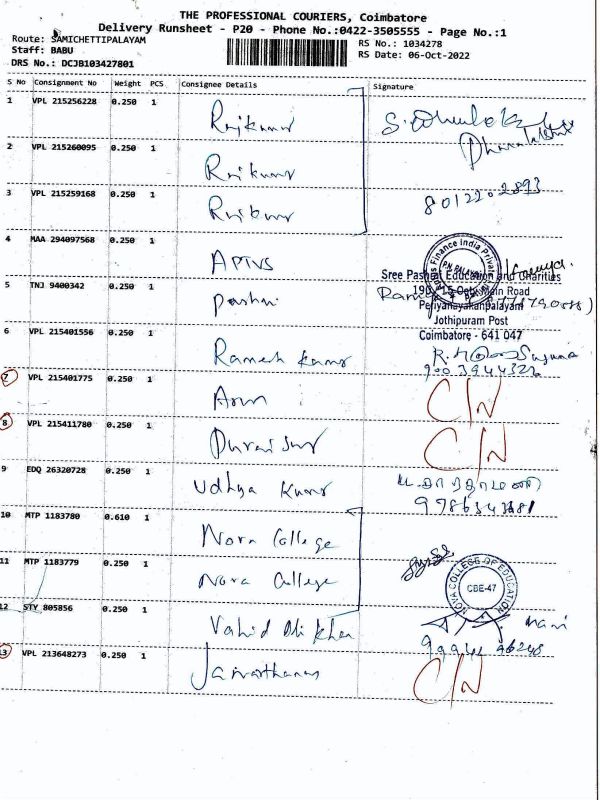 THE PROFESSIONAL COURIERS, Coimbatore
Delivery Runsheet - P20 - Phone No.:0422-3505555 - Page No.:1
Route: SAMICHETTIPALAYAM
Staff: BABU
RS No.: 1034278
DRS No.: DCJB103427801
RS Date: 06-Oct-2022
S No Consignment No Weight PCS Consignee Details Signature
1 VPL 215256228 0.250 1 Rajkumar
2 VPL 215260095 0.250 1 Rajkumar
3 VPL 215259168 0.250 1 Rajkumar 8012202893
4 MAA 294097568 0.250 1 APTVS
Sree Pashpal Education and Charities
5 TNJ 9400342 0.250 1
Periyanayakanpalayam
Jothipuram Post
Coimbatore - 641 047
6 VPL 215401556 0.250 1 Ramesh Kumar
7 VPL 215401775 0.250 1 Arun C/N
8 VPL 215411780 0.250 1 C/N
9 EDQ 26320728 0.250 1 Udhya Kumar
10 MTP 1183780 0.610 1 Nova College
11 MTP 1183779 0.250 1 Nova College
NOVA COLLEGE OF EDUCATION
CBE-47
12 STY 805856 0.250 1 Vahid Ali Khan Mani
13 VPL 213648273 0.250 1 C/N